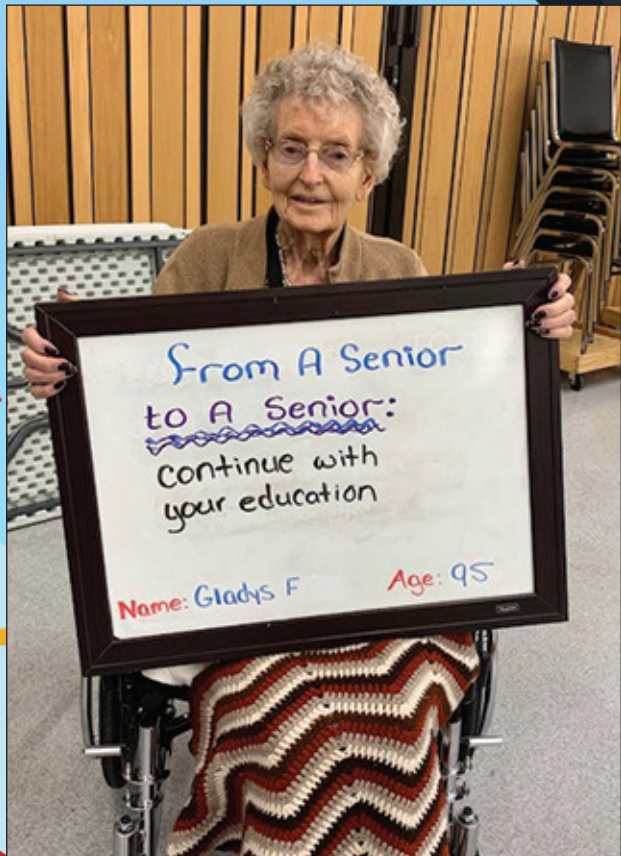 From A Senior
to A Senior:
continue with
your education
Name: Gladys F
Age: 95